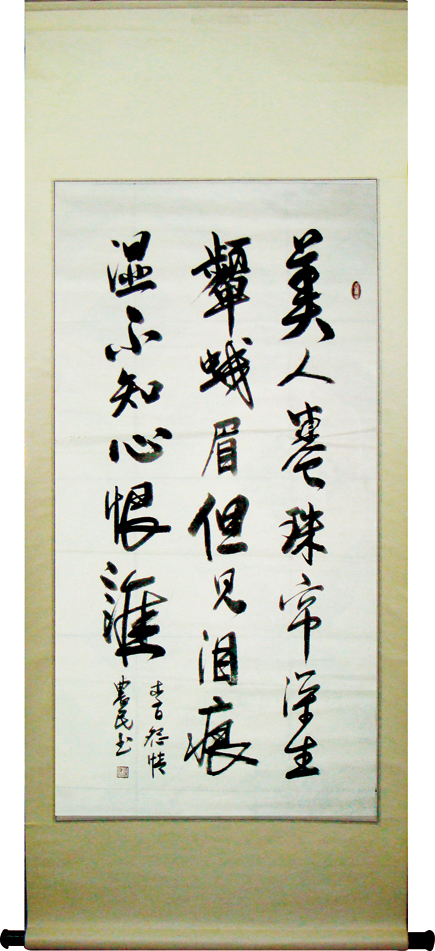 美人卷珠帘深坐
顰蛾眉但见泪痕
湿不知心恨谁
李白怨情
農民书